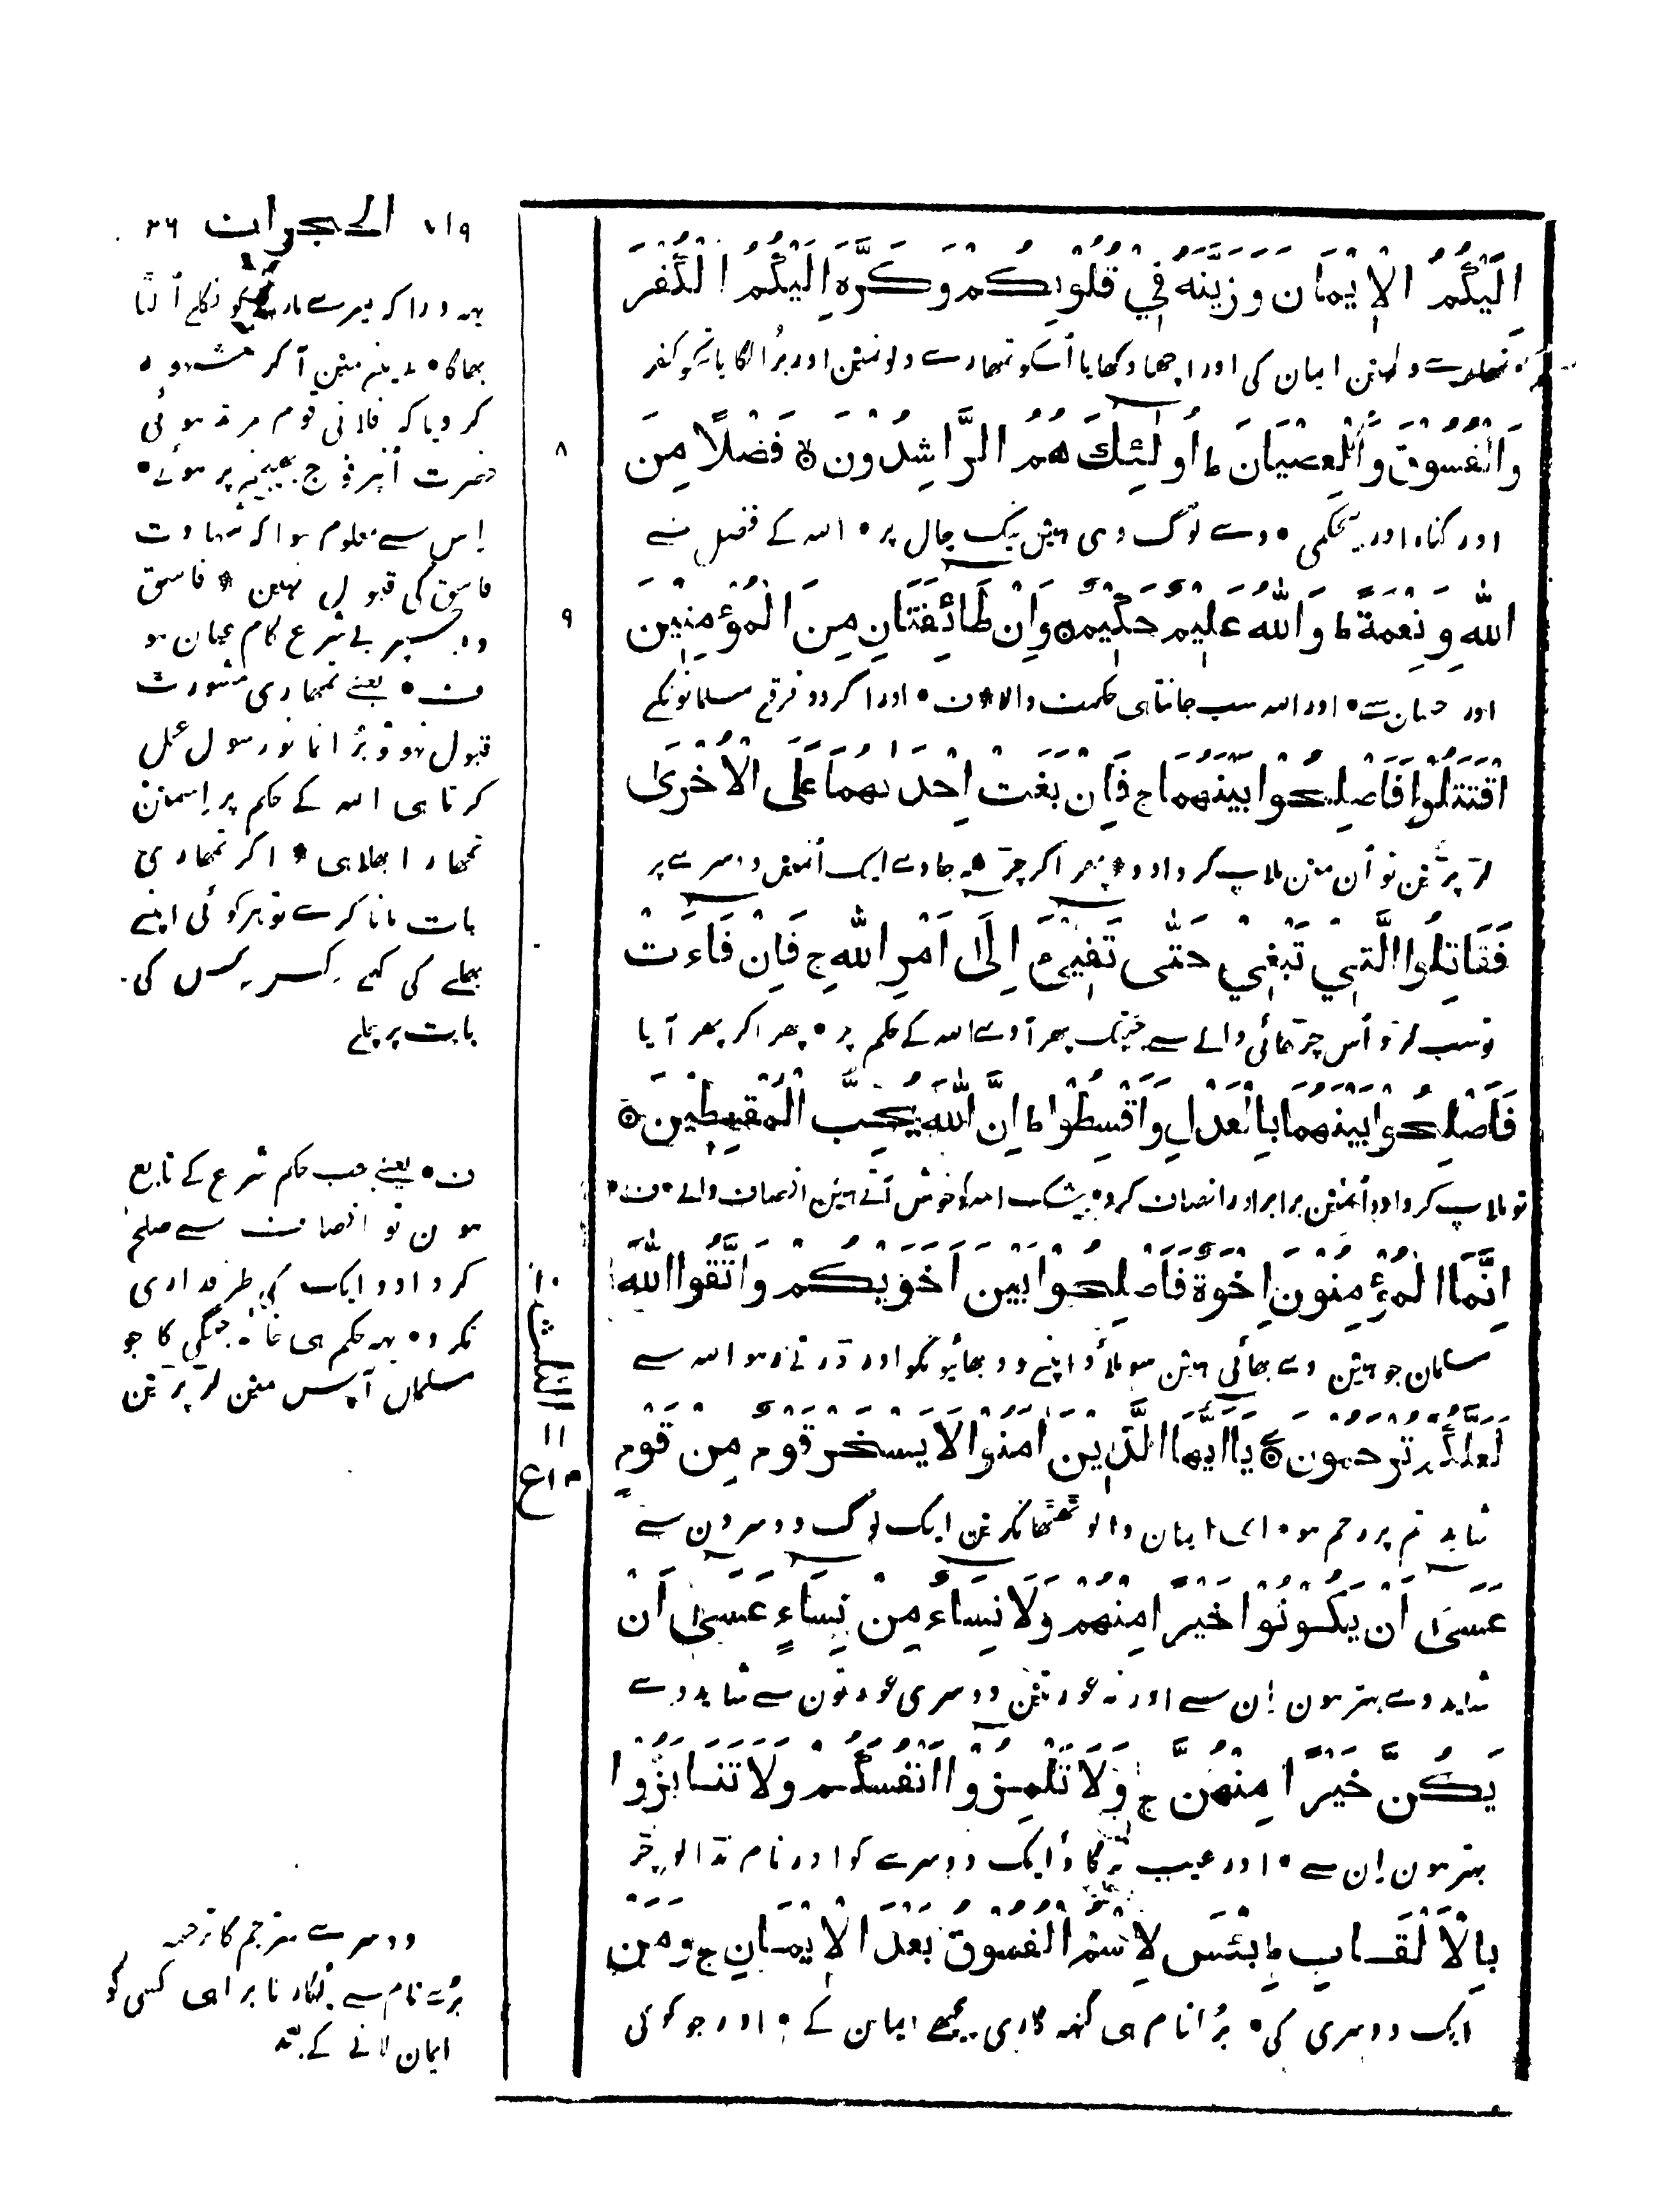 ٧١٩ الحجرات ٢٦
اِلَيْكُمُ الْاِيْمَانَ وَزَيَّنَهُ فِيْ قُلُوْبِكُمْ وَكَرَّهَ اِلَيْكُمُ الْكُفْرَ
تمهارے دلمین ایمان کی اور اچھا دکھایا اُسکو تمهارے دلونمین اور بُرا لگایا تمکو کفر
وَالْفُسُوْقَ وَالْعِصْيَانَ ط اُولٰئِكَ هُمُ الرَّاشِدُوْنَ ۞ فَضْلًا مِنَ
اور گناہ اور بیحکمی • وے لوگ وہی هین نیک چال پر • اللہ کے فضل سے
اللهِ وَنِعْمَةً ط وَاللهُ عَلِيْمٌ حَكِيْمٌ ۞ وَاِنْ طَائِفَتَانِ مِنَ الْمُؤْمِنِيْنَ
اور احسان سے • اور اللہ سب جانتا ہی حکمت والا • ف • اور اگر دو فرقے مسلمانونکے
اقْتَتَلُوْا فَاَصْلِحُوْا بَيْنَهُمَا ج فَاِنْ بَغَتْ اِحْدٰىهُمَا عَلَى الْاُخْرٰى
لڑ پڑین تو اُن مین ملاپ کروا دو • پھر اگر چڑھ جاوے ایک اُنمین دوسرے پر
فَقَاتِلُوا الَّتِيْ تَبْغِيْ حَتّٰى تَفِيْءَ اِلٰى اَمْرِ اللهِ ج فَاِنْ فَاءَتْ
تو سب لڑو اُس چڑھائی والے سے جبتک پھر آوے اللہ کے حکم پر • پھر اگر پھر آیا
فَاَصْلِحُوْا بَيْنَهُمَا بِالْعَدْلِ وَاَقْسِطُوْا ط اِنَّ اللهَ يُحِبُّ الْمُقْسِطِيْنَ ۞
تو ملاپ کروا دو اُنمین برابر اور انصاف کرو • بیشک اللہ کو خوش آتے هین انصاف والے • ف •
اِنَّمَا الْمُؤْمِنُوْنَ اِخْوَةٌ فَاَصْلِحُوْا بَيْنَ اَخَوَيْكُمْ وَاتَّقُوا اللهَ
مسلمان جو هین وے بھائی هین سو ملاؤ اپنے دو بھائیونکو اور ڈرتے رهو اللہ سے
لَعَلَّكُمْ تُرْحَمُوْنَ ۞ يَا اَيُّهَا الَّذِيْنَ اٰمَنُوْا لَا يَسْخَرْ قَوْمٌ مِنْ قَوْمٍ
شاید تم پر رحم هو • ای ایمان والو ٹھٹھا نکرین ایک لوگ دوسرون سے
عَسٰى اَنْ يَكُوْنُوْا خَيْرًا مِنْهُمْ وَلَا نِسَاءٌ مِنْ نِسَاءٍ عَسٰى اَنْ
شاید وے بہتر هون اِن سے اور نہ عورتین دوسری عورتون سے شاید وے
يَكُنَّ خَيْرًا مِنْهُنَّ ج وَلَا تَلْمِزُوْا اَنْفُسَكُمْ وَلَا تَنَابَزُوْا
بہتر هون اِن سے • اور عیب نہ لگاؤ ایک دوسرے کو اور نام نڈالو چڑ
بِالْاَلْقَابِ ط بِئْسَ الْاِسْمُ الْفُسُوْقُ بَعْدَ الْاِيْمَانِ ج وَمَنْ
ایک دوسری کی • بُرا نام ہی گنہگاری پیچھے ایمان کے • اور جو کوئی
٨
٩
١٠
الثلث
١١
ع
یہ ڈرا کہ میرے مارنیکو نکلے اُلٹا
بھاگا • مدینے مین آکر مشہور
کر دیا کہ فلانی قوم مرتد ہوئی
حضرت اُنپر فوج بھیجنے پر ہوئے •
اِس سے معلوم ہوا کہ شہادت
فاسق کی قبول نہین • فاسق
وہ جسپر بے شرع کام عیان ہو
ف • یعنے تمھاری مشورت
قبول نہو تو بُرا نمانو رسول عمل
کرتا ہی اللہ کے حکم پر اِسمین
تمھارا بھلا ہی • اگر تمھاری
بات مانا کرے تو ہر کوئی اپنے
بھلے کی کہے کس کس کی
بات پر چلے
ف • یعنے جب حکم شرع کے تابع
ہون تو انصاف سے صلح
کروا دو ایک کی طرفداری
نکرو • یہ حکم ہی خانہ جنگی کا جو
مسلمان آپس مین لڑ پڑین
دوسرے مترجم کا ترجمہ
بُرے نام سے پُکارنا برا ہی کسی کو
ایمان لانے کے بعد